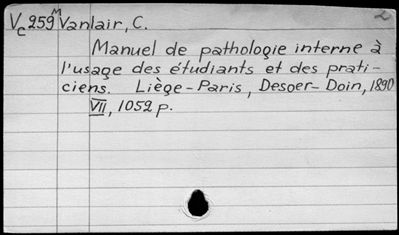 Vc259M Vanlair, C. 2
Manuel de pathologie interne à
l'usage des étudiants et des prati-
ciens. Liège-Paris, Desoer-Doin, 1890
VII, 1052 p.